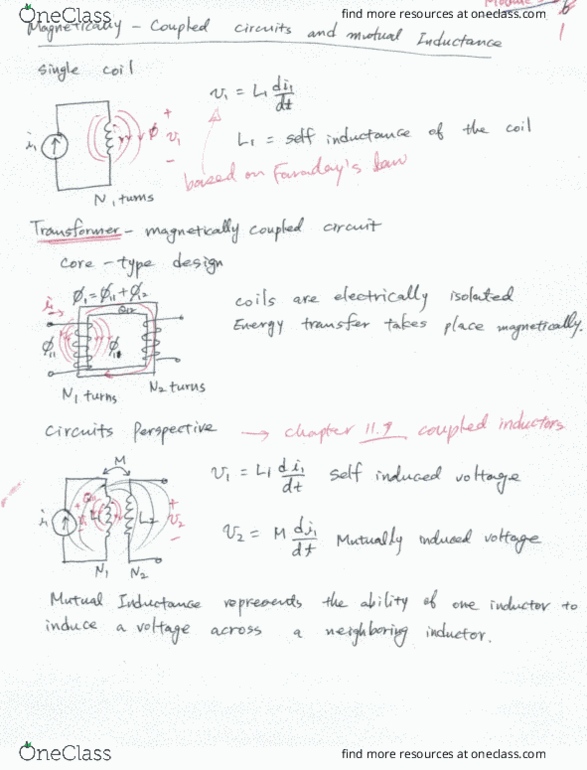 OneClass
find more resources at oneclass.com
Magnetically - Coupled circuits and mutual Inductance
1
single coil
v₁ = L₁ di₁/dt
i₁
ϕ
+
v₁
-
L₁ = self inductance of the coil
based on Faraday's law
N₁ turns
Transformer - magnetically coupled circuit
core - type design
i₁
ϕ₁ = ϕ₁₁ + ϕ₁₂
coils are electrically isolated
Energy transfer takes place magnetically.
ϕ₁₁
N₁ turns
N₂ turns
Circuits Perspective → chapter 11.9 coupled inductors
M
v₁ = L₁ di₁/dt self induced voltage
i₁
L₂
+
v₂
-
v₂ = M di₁/dt Mutually induced voltage
N₁ N₂
Mutual Inductance represents the ability of one inductor to
induce a voltage across a neighboring inductor.
OneClass
find more resources at oneclass.com